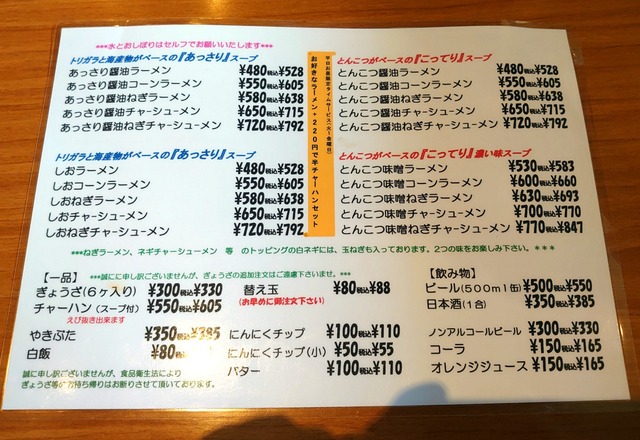 ***水とおしぼりはセルフでお願いいたします***
トリガラと海産物がベースの『あっさり』スープ
あっさり醤油ラーメン ¥480税込¥528
あっさり醤油コーンラーメン ¥550税込¥605
あっさり醤油ねぎラーメン ¥580税込¥638
あっさり醤油チャーシューメン ¥650税込¥715
あっさり醤油ねぎチャーシューメン ¥720税込¥792
トリガラと海産物がベースの『あっさり』スープ
しおラーメン ¥480税込¥528
しおコーンラーメン ¥550税込¥605
しおねぎラーメン ¥580税込¥638
しおチャーシューメン ¥650税込¥715
しおねぎチャーシューメン ¥720税込¥792
平日お昼限定タイムサービス(火~金曜日)
お好きなラーメン+220円で半チャーハンセット
とんこつがベースの『こってり』スープ
とんこつ醤油ラーメン ¥480税込¥528
とんこつ醤油コーンラーメン ¥550税込¥605
とんこつ醤油ねぎラーメン ¥580税込¥638
とんこつ醤油チャーシューメン ¥650税込¥715
とんこつ醤油ねぎチャーシューメン ¥720税込¥792
とんこつがベースの『こってり』濃い味スープ
とんこつ味噌ラーメン ¥530税込¥583
とんこつ味噌コーンラーメン ¥600税込¥660
とんこつ味噌ねぎラーメン ¥630税込¥693
とんこつ味噌チャーシューメン ¥700税込¥770
とんこつ味噌ねぎチャーシューメン ¥770税込¥847
***ねぎラーメン、ネギチャーシューメン 等 のトッピングの白ネギには、玉ねぎも入っております。2つの味をお楽しみ下さい。***
【一品】 ***誠に申し訳ございませんが、ぎょうざの追加注文はご遠慮下さいませ。***
ぎょうざ(6ヶ入り) ¥300税込¥330
チャーハン(スープ付) ¥550税込¥605
えび抜き出来ます
やきぶた ¥350税込¥385
白飯 ¥80税込
誠に申し訳ございませんが、食品衛生法により
ぎょうざ等のお持ち帰りはお断りさせて頂いております。
替え玉 ¥80税込¥88
(お早めに御注文下さい)
にんにくチップ ¥100税込¥110
にんにくチップ(小) ¥50税込¥55
バター ¥100税込¥110
【飲み物】
ビール(500ml缶) ¥500税込¥550
日本酒(1合) ¥350税込¥385
ノンアルコールビール ¥300税込¥330
コーラ ¥150税込¥165
オレンジジュース ¥150税込¥165